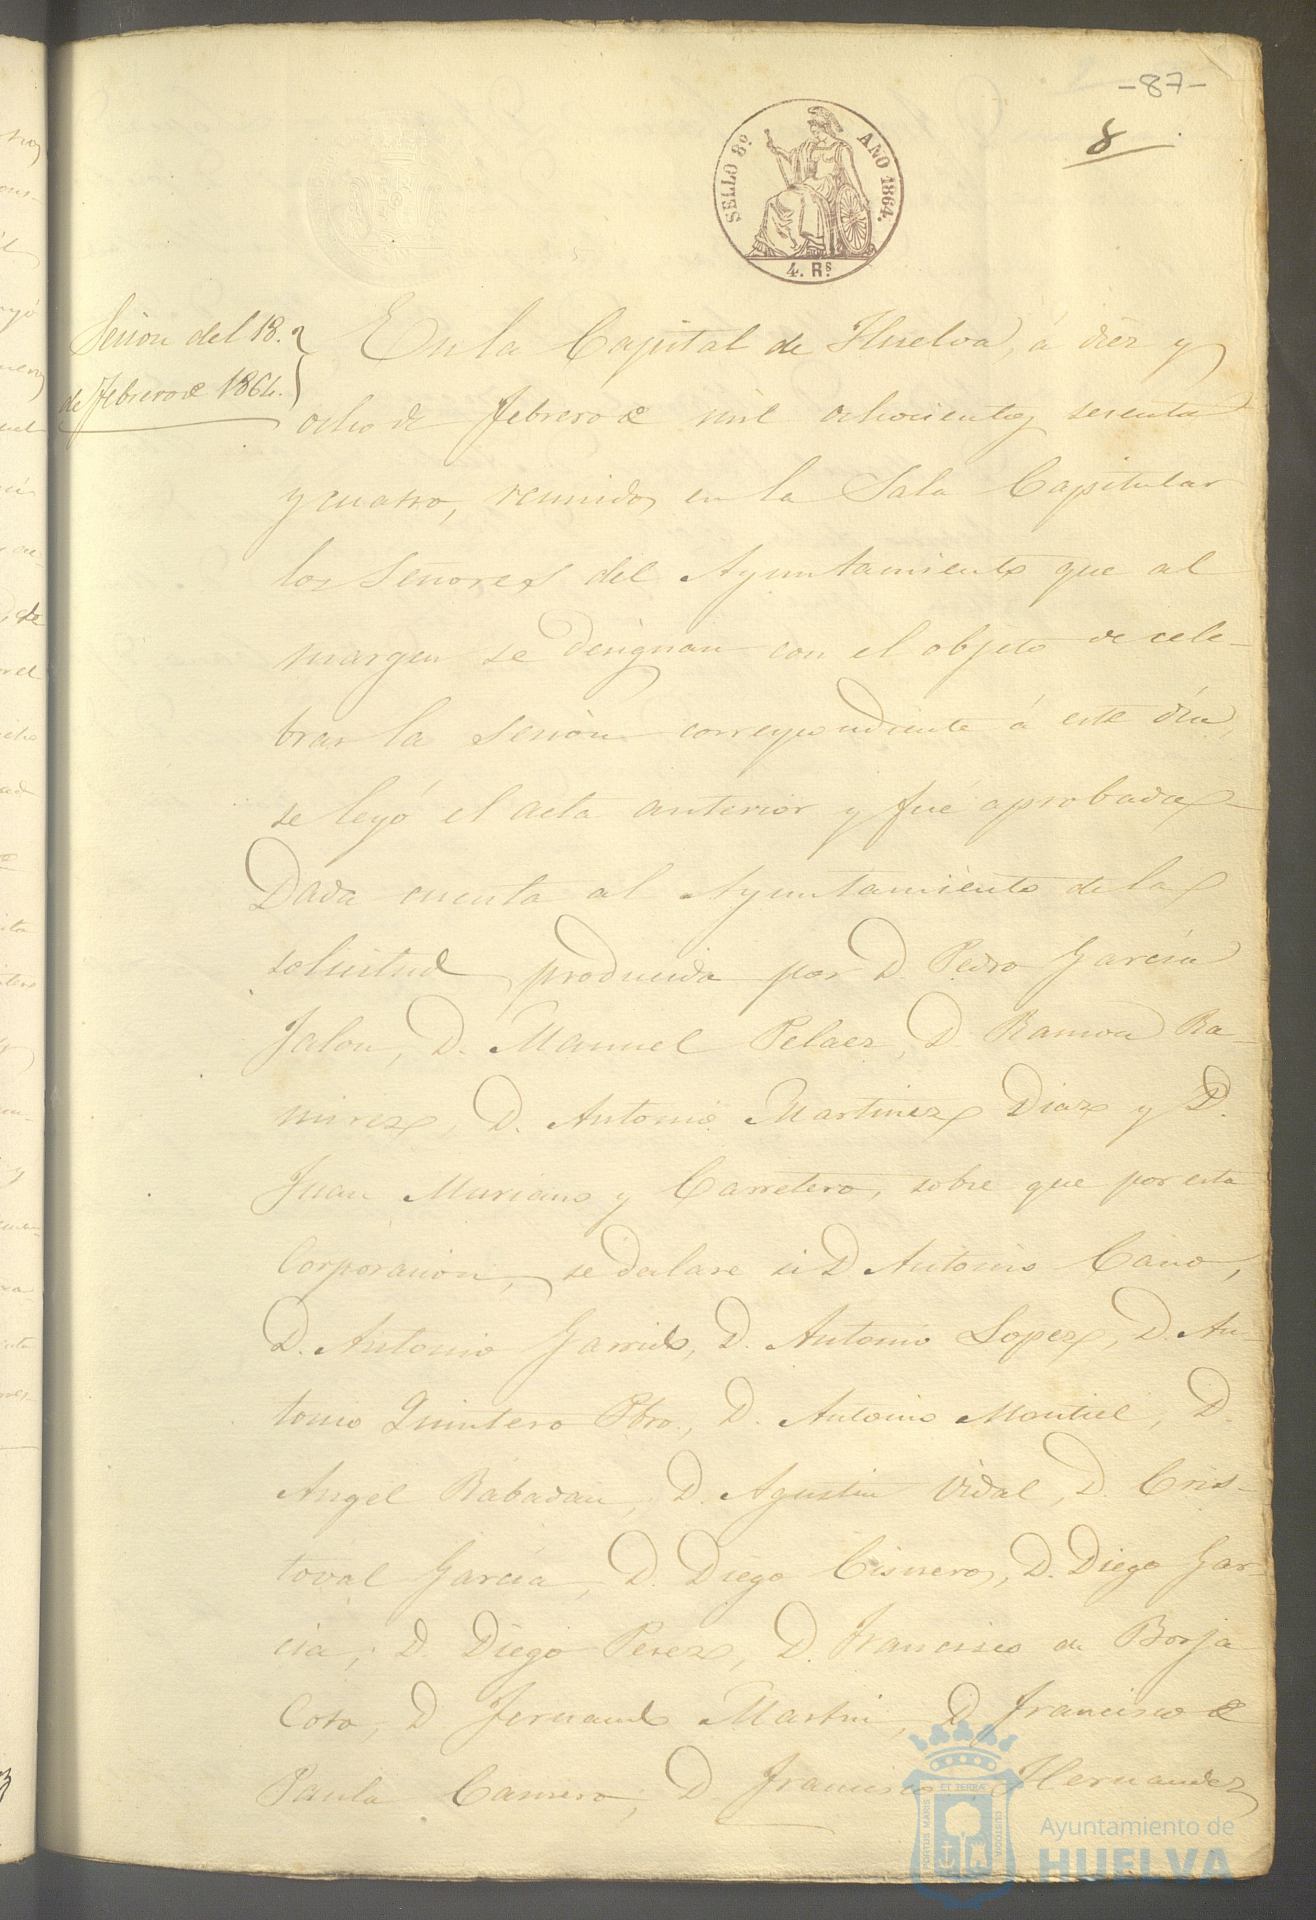 -87-
8
SELLO 8º AÑO 1864.
4. Rs
Sesion del 18.
de febrero de 1864.
En la Capital de Huelva, á diez y
ocho de febrero de mil ochocientos sesenta
y cuatro, reunidos en la Sala Capitular
los Señores del Ayuntamiento que al
margen se designan con el objeto de cele-
brar la sesion correspondiente á este dia,
se leyó el acta anterior y fué aprobada
Dada cuenta al Ayuntamiento de la
solicitud producida por D. Pedro Garcia
Jalon, D. Manuel Pelaez, D. Ramon Ra-
mirez, D. Antonio Martinez Diaz y D.
Juan Muriano y Carretero, sobre que por esta
Corporacion, se declare si D Antonio Cano,
D. Antonio Garrido, D. Antonio Lopez, D. An-
tonio Quintero Pbro., D. Antonio Montiel, D.
Angel Rabadan, D. Agustin Vidal, D. Cris-
toval Garcia, D. Diego Cisneros, D. Diego Gar-
cia, D Diego Perez, D. Francisco de Borja
Coto, D Fernando Martin, D. Francisco de
Paula Carrero, D. Francisco Hernandez
PORTUS MARIS ET TERRÆ CUSTODIA
Ayuntamiento de
HUELVA